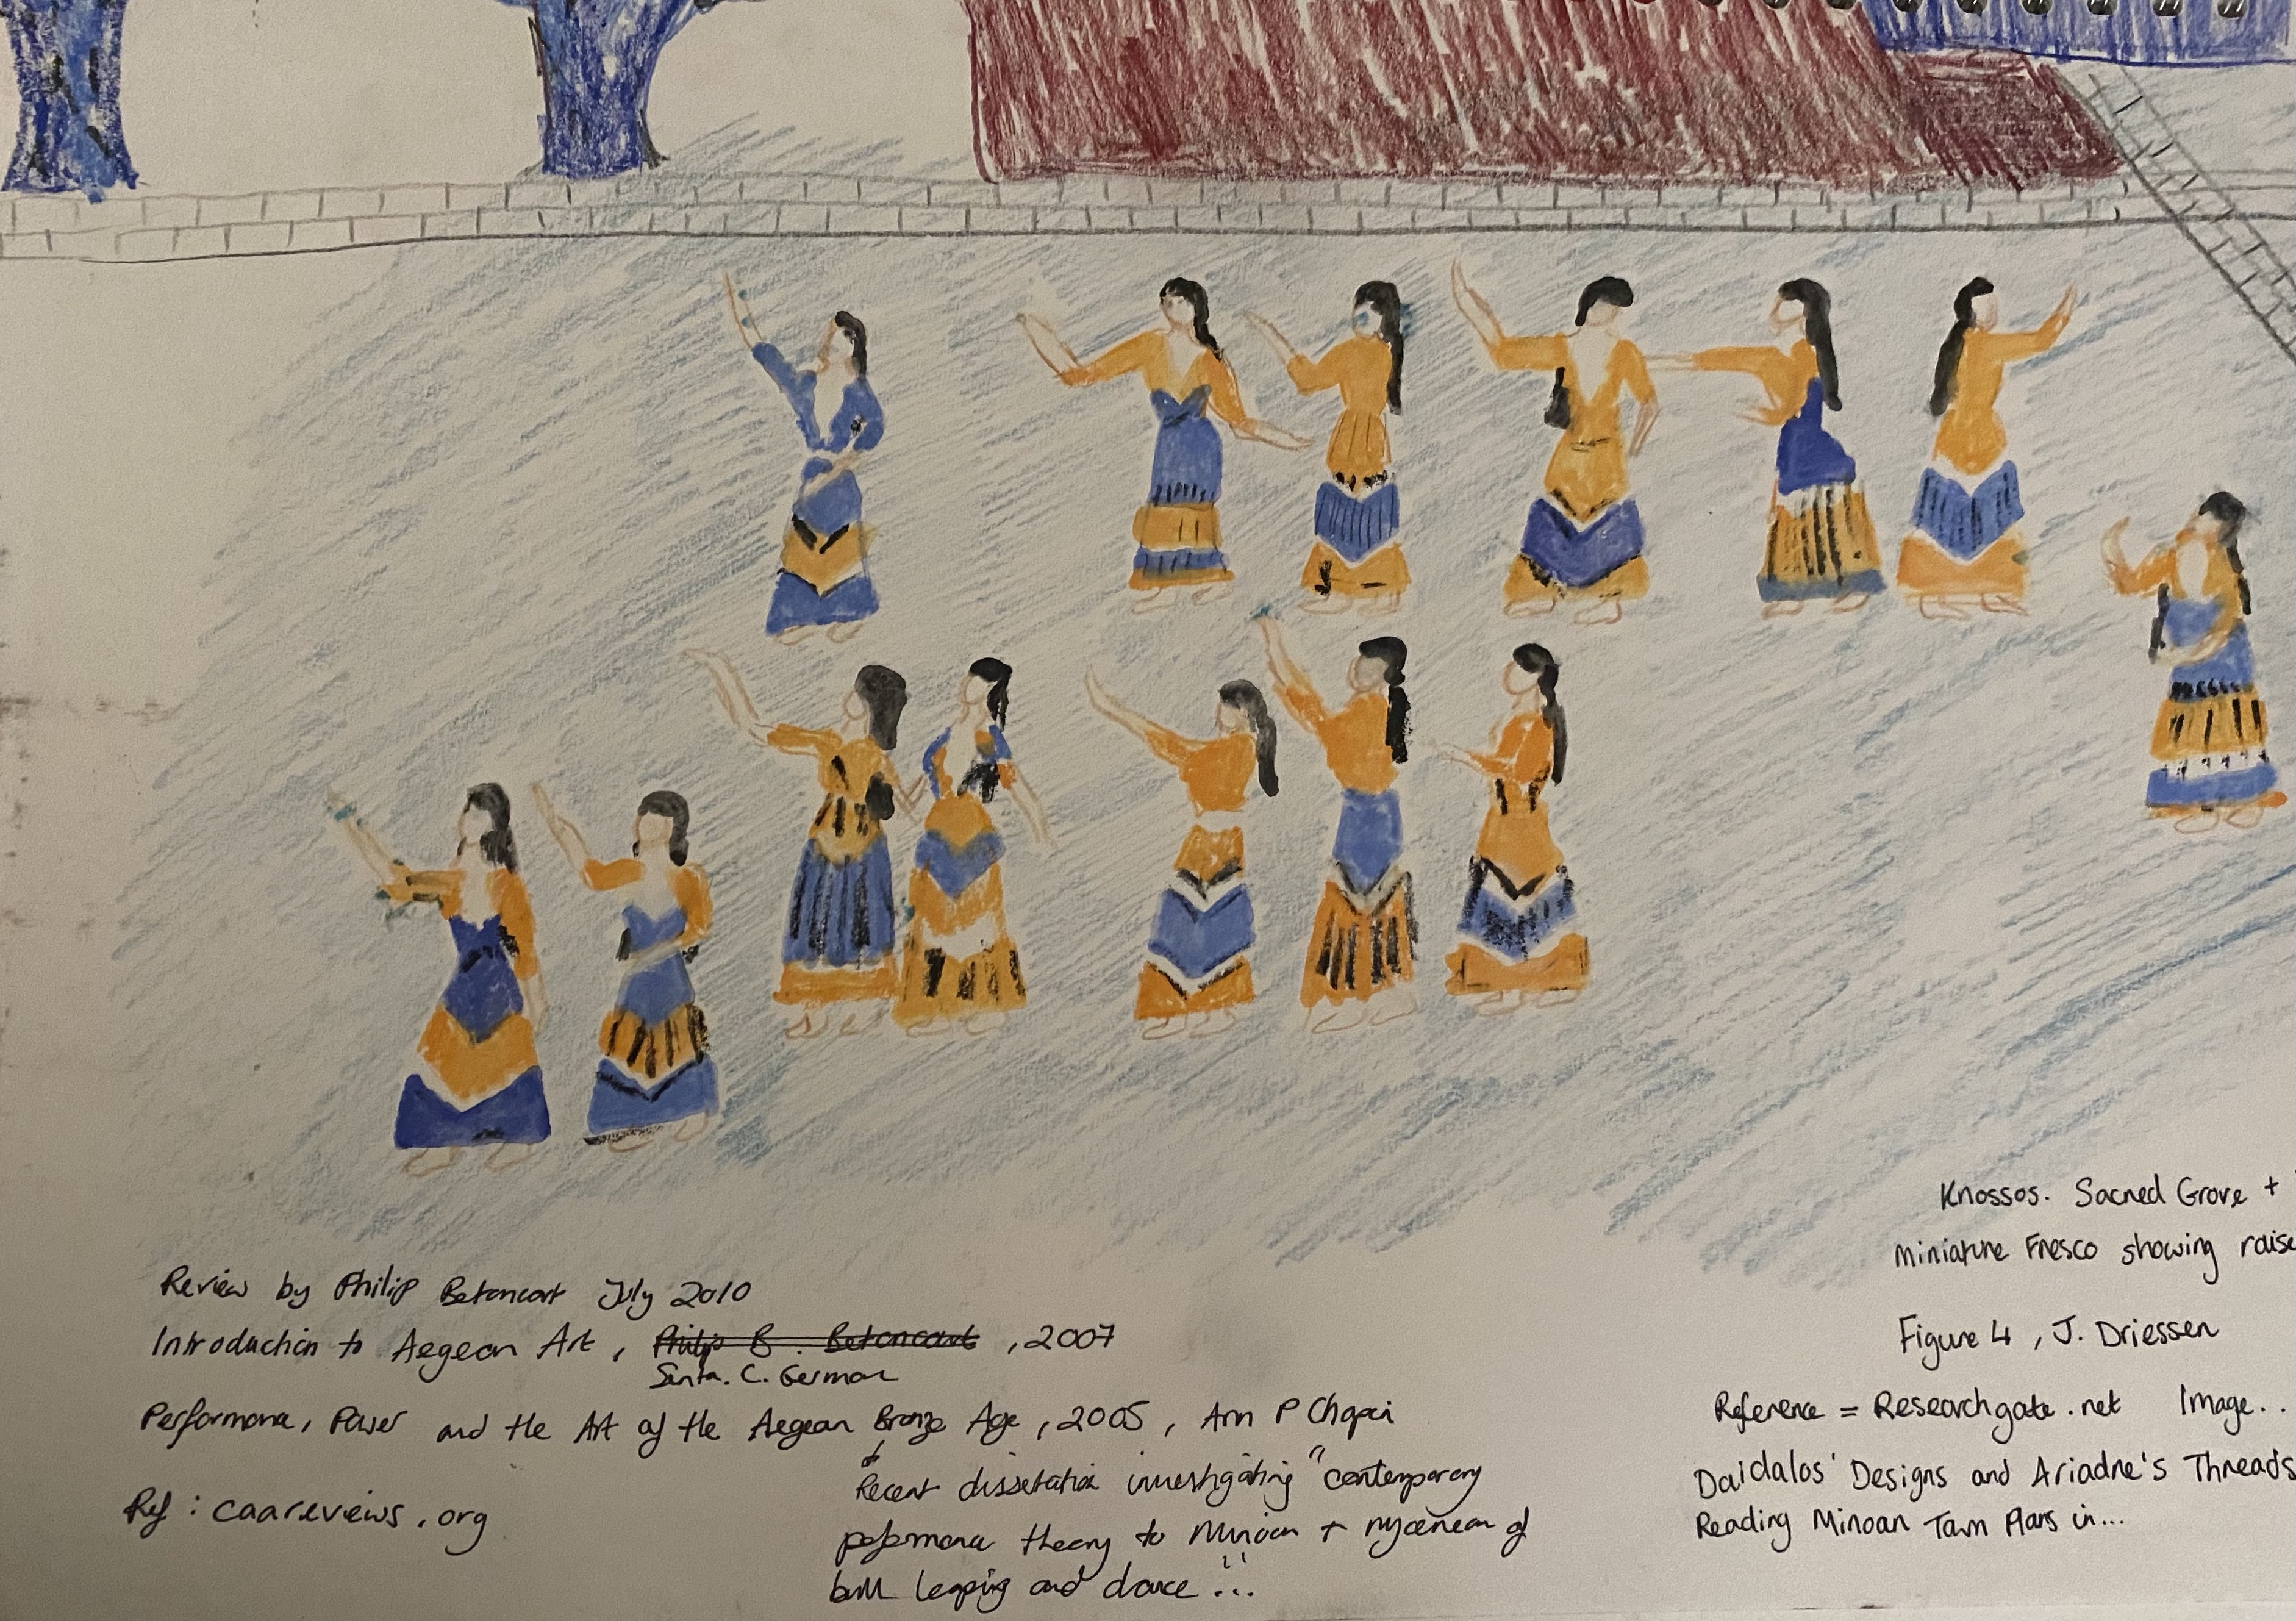 Review by Philip Betancourt July 2010
Introduction to Aegean Art, Philip B. Betancourt, 2007
Senta. C. German
Performance, Power and the Art of the Aegean Bronze Age, 2005, Ann P Chapin
Recent dissertation investigating "contemporary
performance theory to Minoan + mycenean of
bull leaping and dance"...
Ref: caareviews.org
Knossos. Sacred Grove +
miniature Fresco showing raise
Figure 4, J. Driessen
Reference = Researchgate.net Image..
Daidalos' Designs and Ariadne's Threads
Reading Minoan Town Plans in...